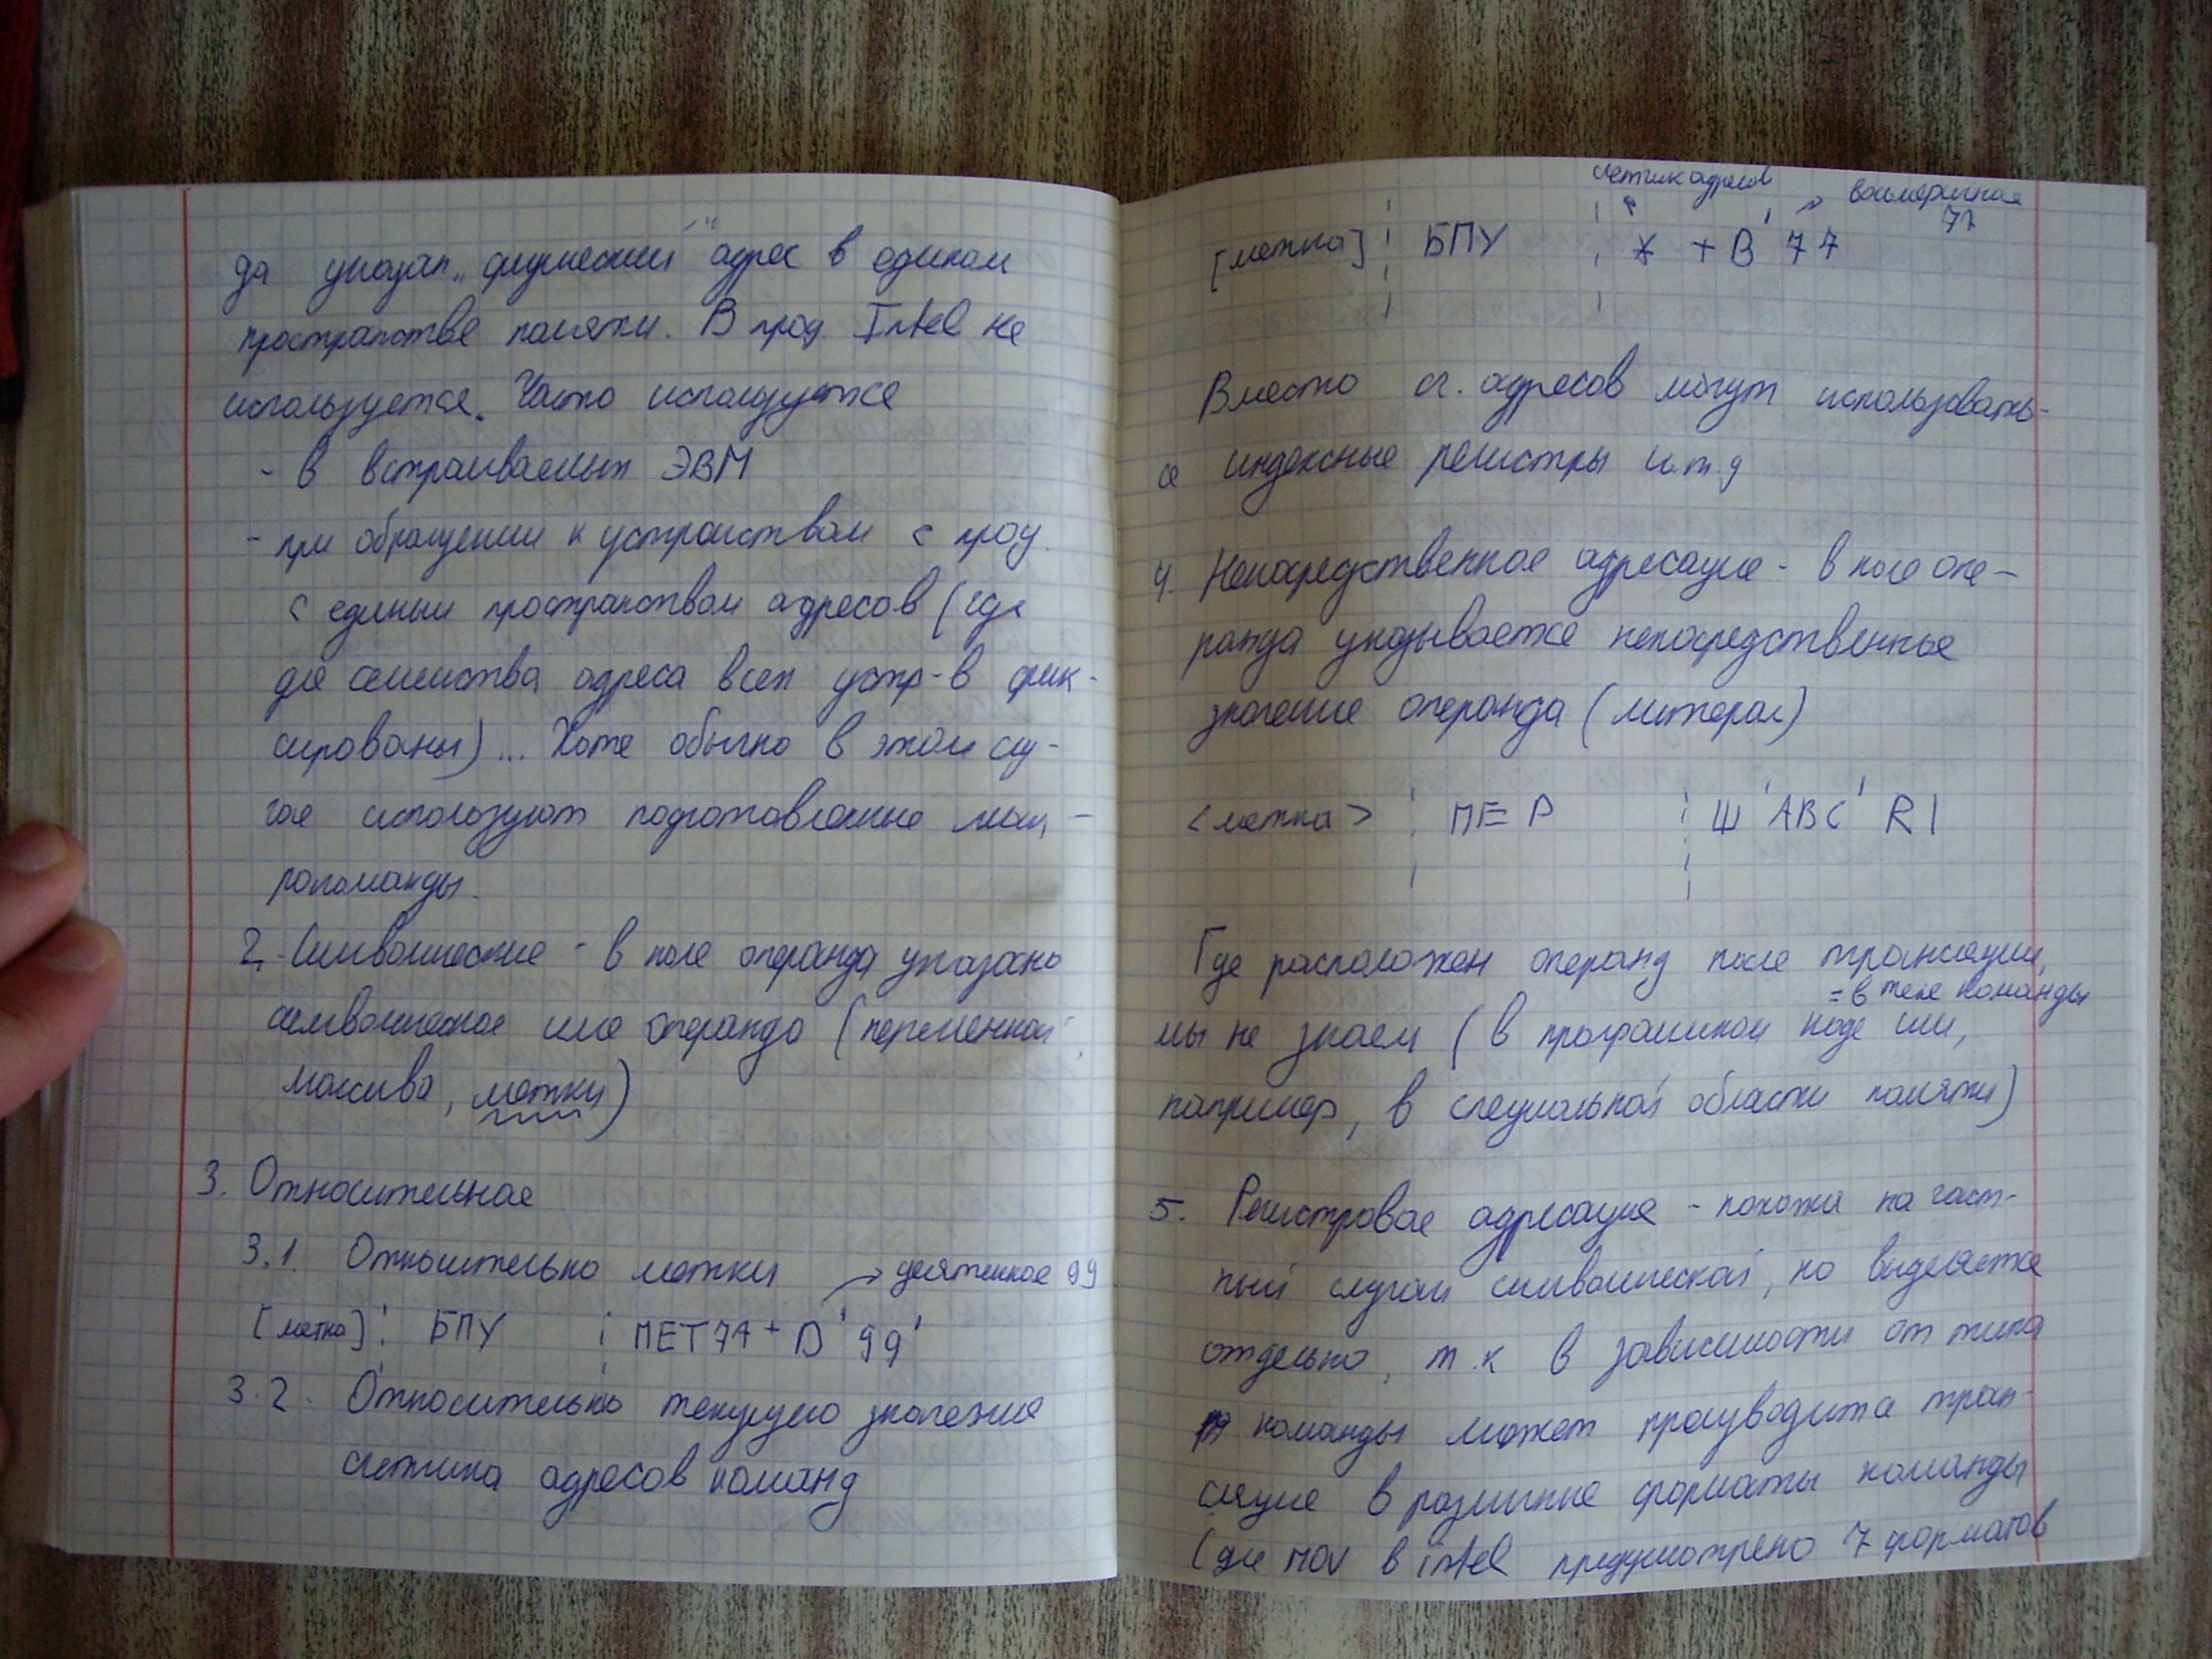 да указан „физический" адрес в едином
пространстве памяти. В прод. Intel не
используется. Часто используется
- в встраиваемых ЭВМ
- при обращении к устройствам с прод.
с единым пространством адресов (где
для семейства адреса всех устр-в фик-
сированы)... Хотя обычно в этом слу-
чае используют подготовленные мак-
рокоманды.
2. Символическая - в поле операнда указано
символическое имя операнда (переменной,
массива, метки)
3. Относительная
3.1. Относительно метки → десятичное 99
[метка] БПУ МЕТ77+D'99'
3.2. Относительно текущего значения
счетчика адресов команд
счетчик адресов → восьмеричная
77
[метка] БПУ * +B'77
Вместо сч. адресов могут использовать-
ся индексные регистры и.т.д
4. Непосредственная адресация - в поле опе-
ранда указывается непосредственное
значение операнда (литерал)
<метка> ПЕР Ш'АВС' R1
Где расположен операнд после трансляции,
= в теле команды
мы не знаем (в программном коде или,
например, в специальной области памяти)
5. Регистровая адресация - похожа на част-
ный случай символической, но выделяется
отдельно, т.к в зависимости от типа
команды может производится тран-
сляция в различные форматы команды
(для MOV в intel предусмотрено 7 форматов